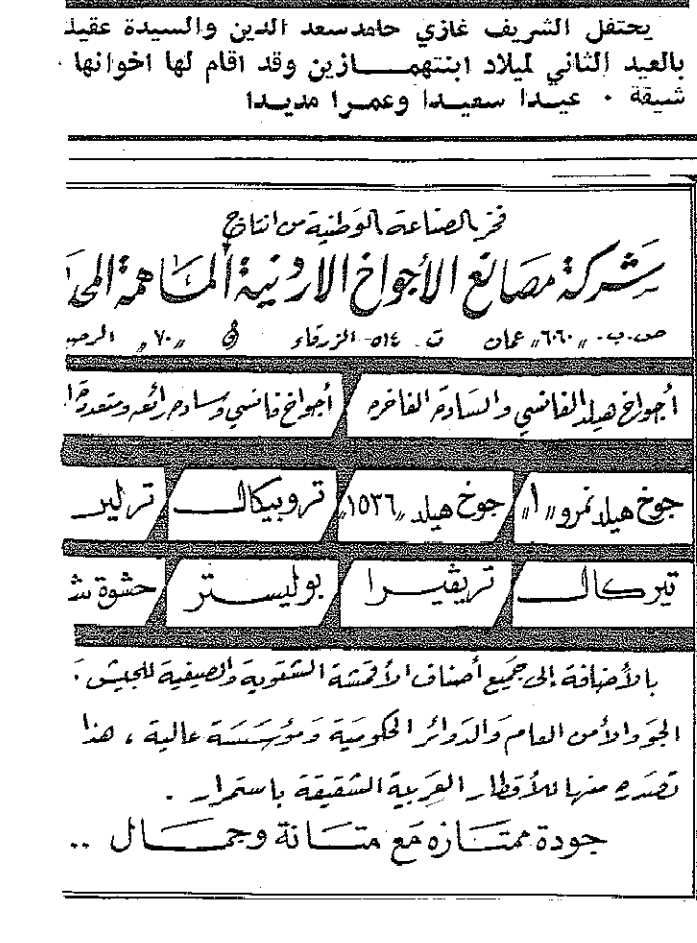 يحتفل الشريف غازي حامد سعد الدين والسيدة عقيلته
بالعيد الثاني لميلاد ابنتهمـــــازين وقد اقام لها اخوانها
شيقة ٠ عيـدا سعيـدا وعمـرا مديـدا
فخر الصناعة الوطنية من انتاج
شركة مصانع الأجواخ الاردنية المساهمة
ص.ب. "٦٠٦٠" عمان ت. ٥١٤ - الزرقاء "٧٠"
أجواخ هيلد الفانسي والسادة الفاخره أجواخ فانسي وساده رائعه ومتعددة
جوخ هيلد نمرو "١" جوخ هيلد "١٥٣٦" تروبيكالـــ ترلير
تيركالـــ تريڤيـــرا بوليســـتر حشوة
بالأضافة إلى جميع أصناف الأقمشة الشتوية والصيفية للجيش
الجو والأمن العام والدوائر الحكومية ومؤسسة عالية ، هذا
منها للأقطار العربية الشقيقة باستمرار .
جودة ممتـــازه مع متـــانة وجمـــال ..